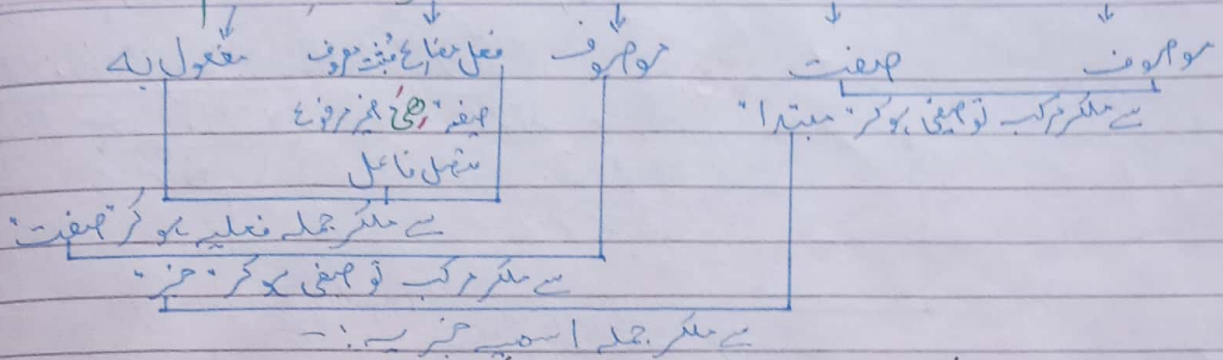 موصوف صفت موصوف فعل مضارع مثبت معروف مفعول بہ
سے ملکر مرکب توصیفی ہوکر "مبتدا" صیغہ ھی ضمیر مرفوع
متصل فاعل
سے ملکر جملہ فعلیہ ہو کر "صفت"
سے ملکر مرکب توصیفی ہوکر "خبر"
سے ملکر جملہ اسمیہ خبریہ :-